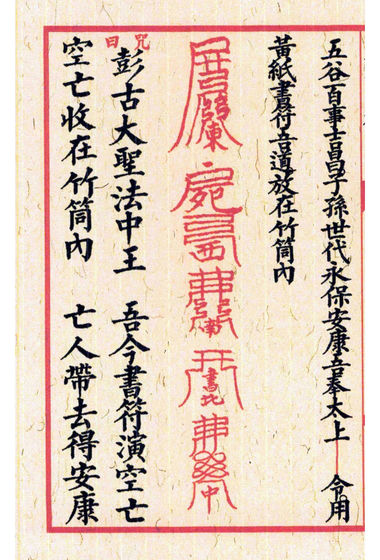 五谷百事吉昌子孫世代永保安康吾奉太上 令用
黃紙書符吾道放在竹筒內
東 西 南 書北 中
咒曰
彭古大聖法中王 吾今書符演空亡
空亡收在竹筒內 亡人帶去得安康